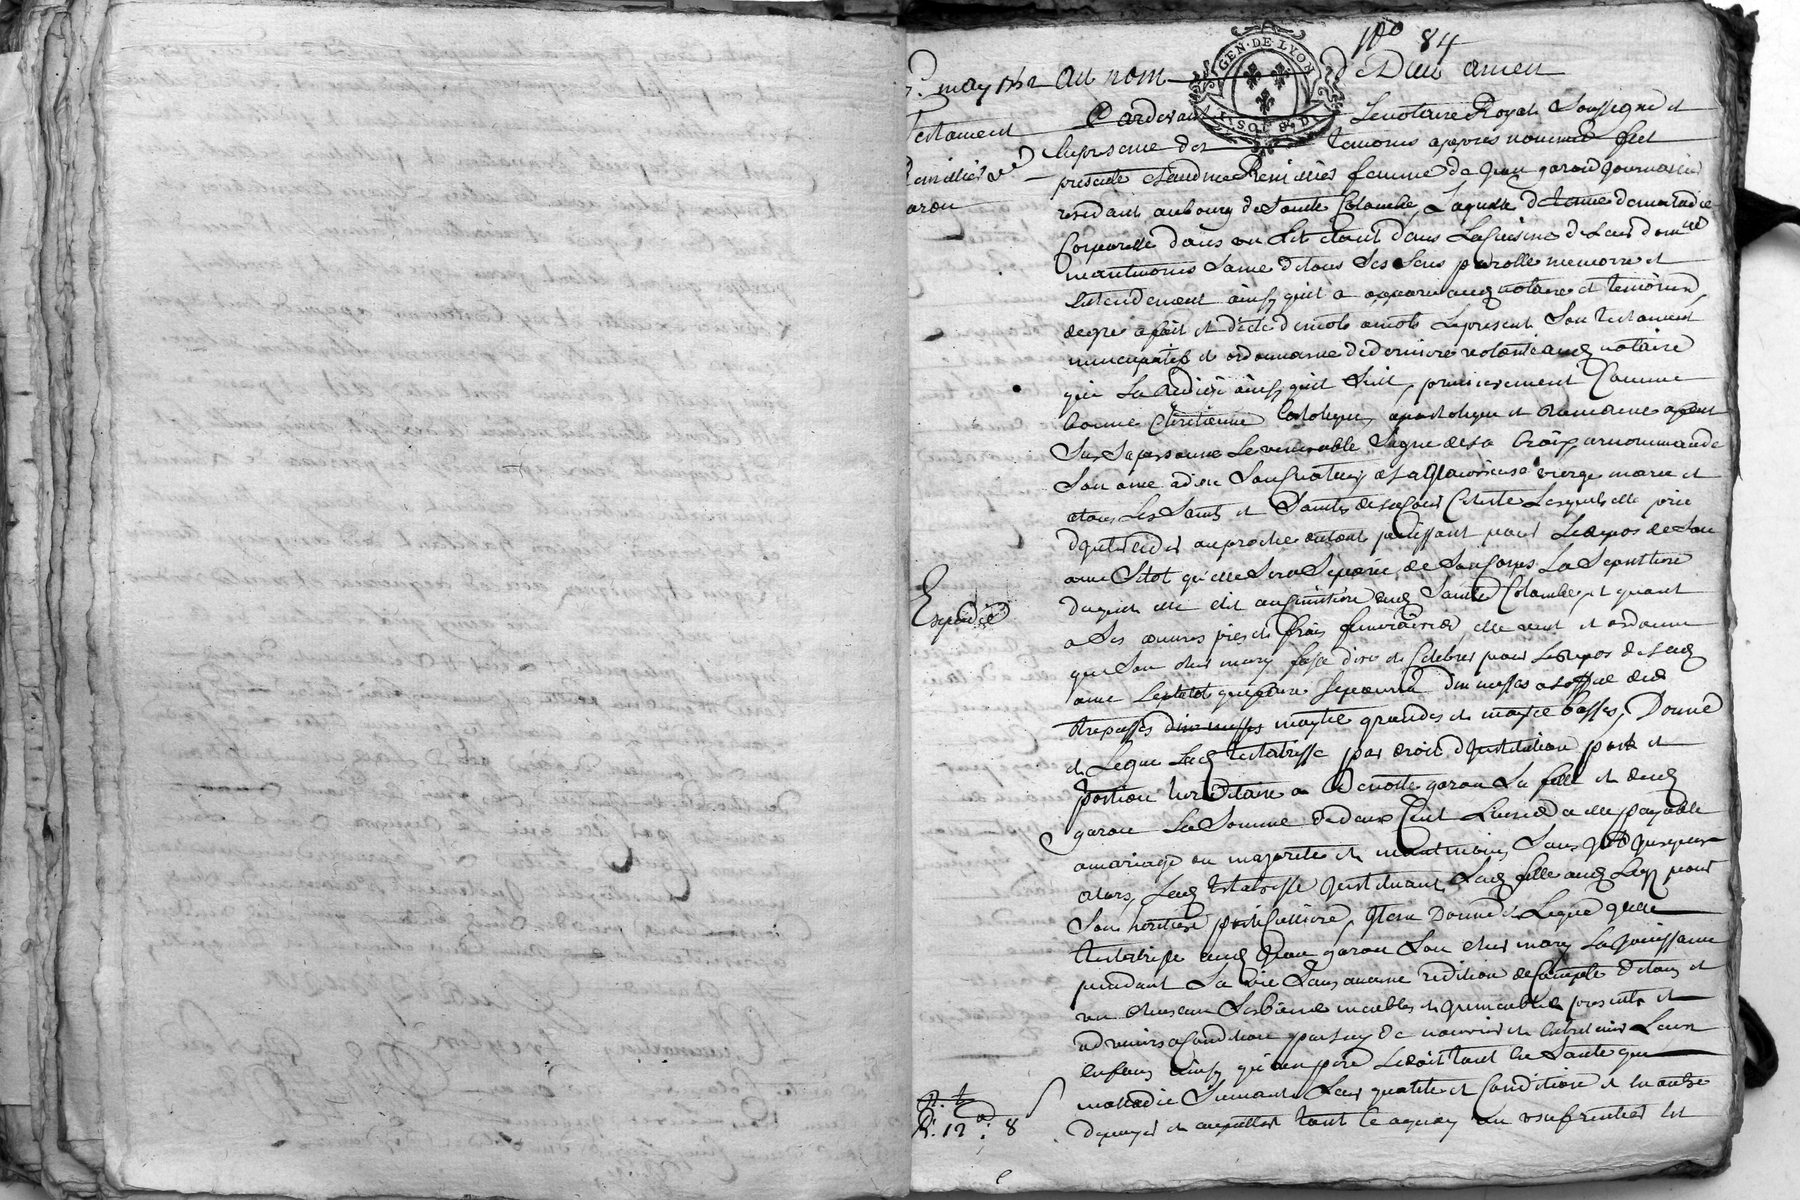 No 84
GEN · DE LYON
may 1762 Au nom de Dieu amen
Testament
Pardevant Le notaire Royal Soussigné et
En presence des temoins appres nommés fut
presente Claudine femme de Jean garon Journalier
residant au bourg de Sainte Colombe, Laquelle detenue de maladie
Corporelle dans un Lit etant dans La Cuisine de Leur domicile
neantmoins Saine de tous Ses Sens parolle memoire et
Entendement ainsy quil a apparu aud notaire et temoins
de gré a fait et dicté de mots a mots Le present Son testament
nuncupatif et ordonnance de derniere volonté aud notaire
qui La redigé ainsy quil Suit, premierement Comme
bonne Chretienne Catolique, apostolique et Romaine a fait
Sur Sa personne Le venerable Signe de la Croix, a recommandé
Son ame a dieu Son Createur, a la Glorieuse vierge marie et
a tous Les Saints et Saintes de la Cour Celeste Lesquels elle prie
d'interceder aupres de tout puissant pour Le repos de Son
ame Sitot qu'elle Sera Separée de Son Corps. La Sepulture
duquel elle elit au Cimetière dud Sainte Colombe, et quant
a Ses œuvres pies et frais funeraires, elle veut et ordonne
que Son cher mary fasse dire et Celebrer pour Le repos de Sad
ame Le plutot que faire Se pourra dix messes a L'office des
trepassés moytié grandes et moytié basses, Donne
et Legue Lad testatrisse par droit d'Institution part et
portion hereditaire a Benoitte garon Sa fille et dud
garon La Somme de deux Cent Livres a elle payable
a mariage ou majorité et neantmoins Sans Interet Jusques
alors, Lad testatrisse Instituant Lad fille aud Legs pour
Son heritiere particulliere, Item Donne et Legue Lad
testatrisse aud Jean garon Son cher mary La Jouissance
pendant Sa vie Sans aucune reddition de Compte de tous et
un chacun Ses biens meubles et Immeubles presents et
advenirs a Condition par luy de nourrir et Entretenir Leurs
enfans ainsy qu'un pere Le doit tant en Santé que
maladie Suivant Leur qualité et Condition et En outre
de payer et acquitter tout Ce a quoy un usufruitier Est
Expedié
R. 12 s 8